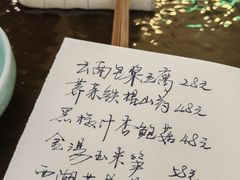 云南包浆豆腐 28元
荠茶铁棍山药 48元
黑椒汁杏鲍菇 48元
金汤玉米笋
58元
西湖